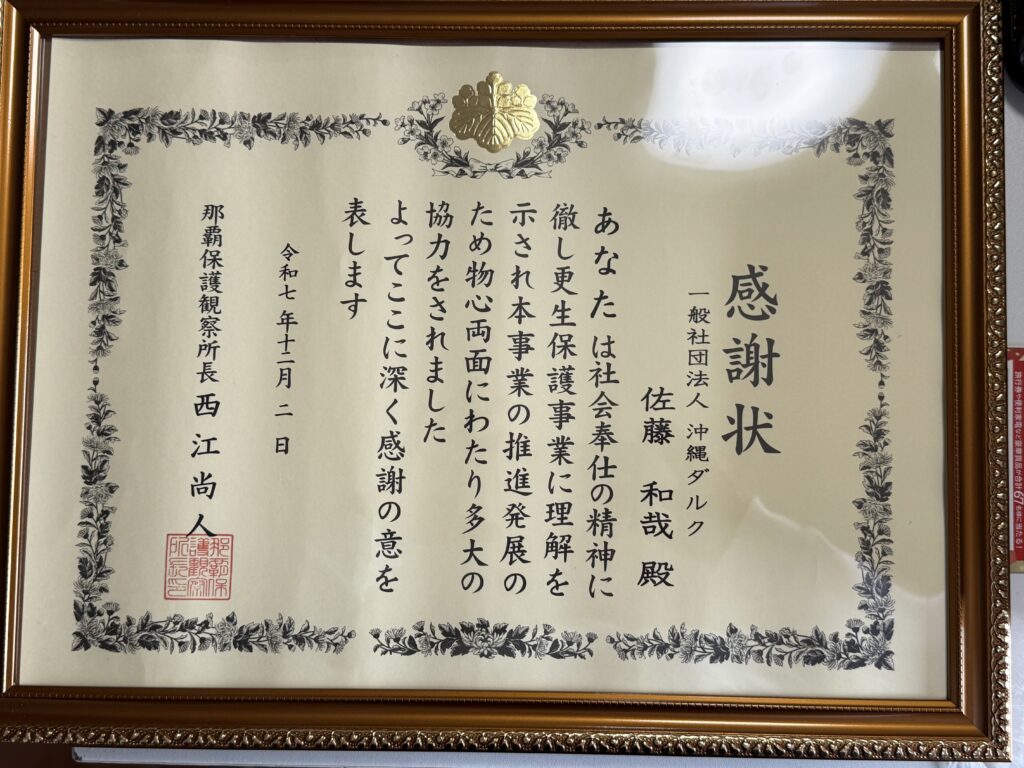 感謝状
一般社団法人 沖縄ダルク
佐藤 和哉 殿
あなたは社会奉仕の精神に
徹し更生保護事業に理解を
示され本事業の推進発展の
ため物心両面にわたり多大の
協力をされました
よってここに深く感謝の意を
表します
令和七年十二月二日
那覇保護観察所長 西江尚人
那覇保
護観察
所長印
旅行券や便利家電など豪華賞品が合計67名様に当たる!